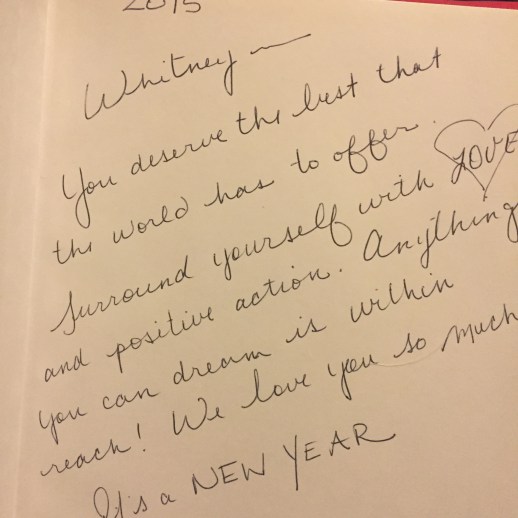 2015
Whitney —
You deserve the best that
the world has to offer.
Surround yourself with LOVE
and positive action. Anything
you can dream is within
reach! We love you so much
It's a NEW YEAR